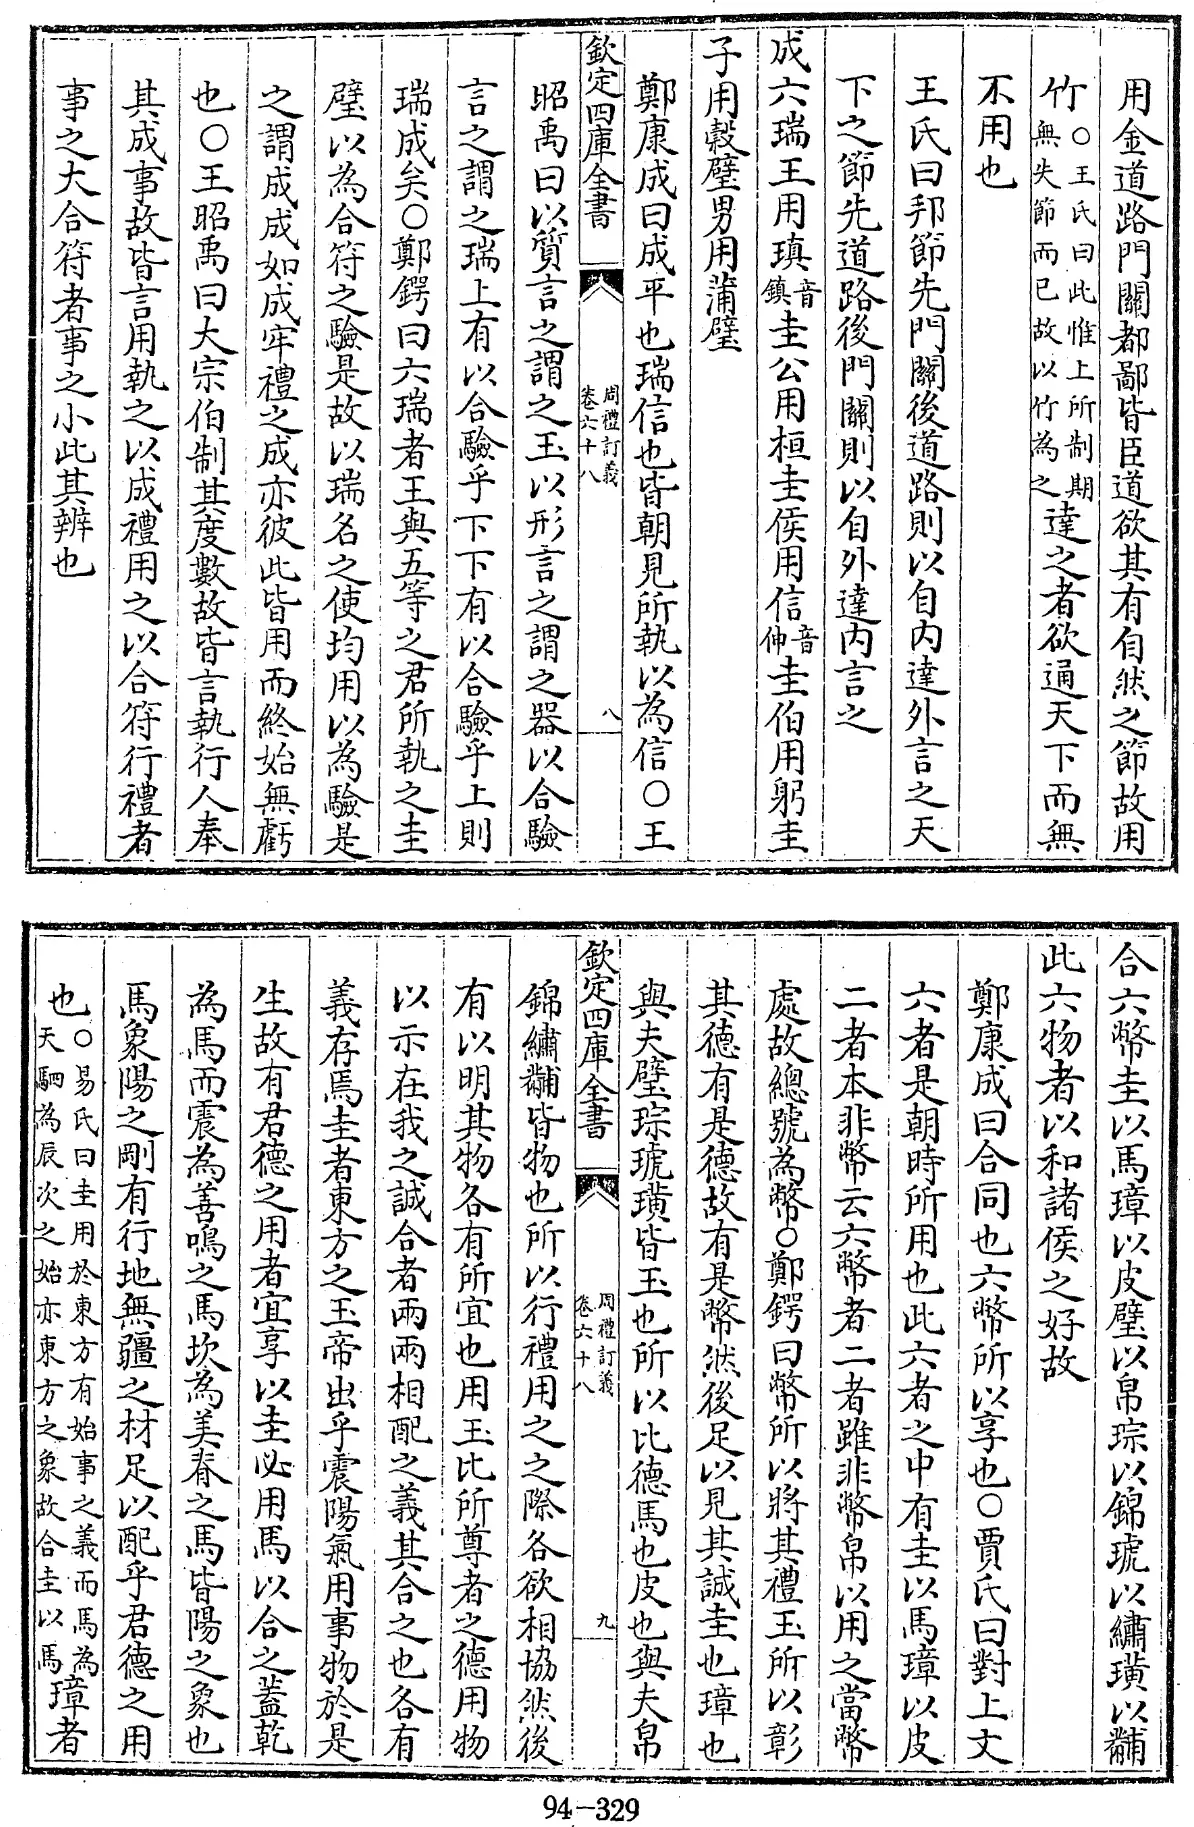 用金道路門關都鄙皆臣道欲其有自然之節故用
竹○王氏曰此惟上所制期無失節而已故以竹為之達之者欲通天下而無
不用也
王氏曰邦節先門關後道路則以自内達外言之天
下之節先道路後門關則以自外達内言之
成六瑞王用瑱音鎮圭公用桓圭侯用信音伸圭伯用躬圭
子用穀璧男用蒲璧
鄭康成曰成平也瑞信也皆朝見所執以為信○王
欽定四庫全書
周禮訂義
卷六十八
八
昭禹曰以質言之謂之玉以形言之謂之器以合驗
言之謂之瑞上有以合驗乎下下有以合驗乎上則
瑞成矣○鄭鍔曰六瑞者王與五等之君所執之圭
璧以為合符之驗是故以瑞名之使均用以為驗是
之謂成成如成牢禮之成亦彼此皆用而終始無虧
也○王昭禹曰大宗伯制其度數故皆言執行人奉
其成事故皆言用執之以成禮用之以合符行禮者
事之大合符者事之小此其辨也
合六幣圭以馬璋以皮璧以帛琮以錦琥以繡璜以黼
此六物者以和諸侯之好故
鄭康成曰合同也六幣所以享也○賈氏曰對上文
六者是朝時所用也此六者之中有圭以馬璋以皮
二者本非幣云六幣者二者雖非幣帛以用之當幣
處故總號為幣○鄭鍔曰幣所以將其禮玉所以彰
其德有是德故有是幣然後足以見其誠圭也璋也
與夫璧琮琥璜皆玉也所以比德馬也皮也與夫帛
欽定四庫全書
周禮訂義
卷六十八
九
錦繡黼皆物也所以行禮用之之際各欲相協然後
有以明其物各有所宜也用玉比所尊者之德用物
以示在我之誠合者兩兩相配之義其合之也各有
義存焉圭者東方之玉帝出乎震陽氣用事物於是
生故有君德之用者宜享以圭必用馬以合之蓋乾
為馬而震為善鳴之馬坎為美脊之馬皆陽之象也
馬象陽之剛有行地無疆之材足以配乎君德之用
也○易氏曰圭用於東方有始事之義而馬為天駟為辰次之始亦東方之象故合圭以馬璋者
94-329